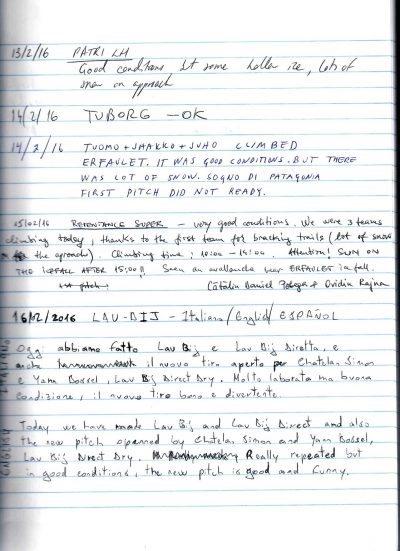 13/2/16 PATRI LH
Good conditions but some hollow ice, lots of
snow on approach
14/2/16 TUBORG - OK
14/2/16 TUOMO + JAAKKO + JUHO CLIMBED
ERFAULET. IT WAS GOOD CONDITIONS. BUT THERE
WAS LOT OF SNOW. SOGNO DI PATAGONIA
FIRST PITCH DID NOT READY.
15/02/16 REPENTANCE SUPER - very good conditions. We were 3 teams
climbing today, thanks to the first team for breaching trails (lot of snow
the aproach). Climbing time: 10:00 - 15:00. Attention! SUN ON
THE ICEFALL AFTER 15:00!! Seen an avalanche near ERFAULET icefall.
Cătălin Daniel & Ovidiu
16/02/2016 LAU-BIJ - Italiano/English/ESPAÑOL
ITALIANO
Oggi abbiamo fatto Lau Bij e Lau Bij Diretta, e
anche il nuovo tiro aperto per Chatelan Simon
e Yann Bossel, Lau Bij Direct Dry. Molto laborata ma buona
condizione, il nuovo tiro bono e divertente.
ENGLISH
Today we have made Lau Bij and Lau Bij Direct and also
the new pitch openned by Chatelan Simon and Yann Bossel,
Lau Bij Direct Dry. Really repeated but
in good conditions, the new pitch is good and funny.